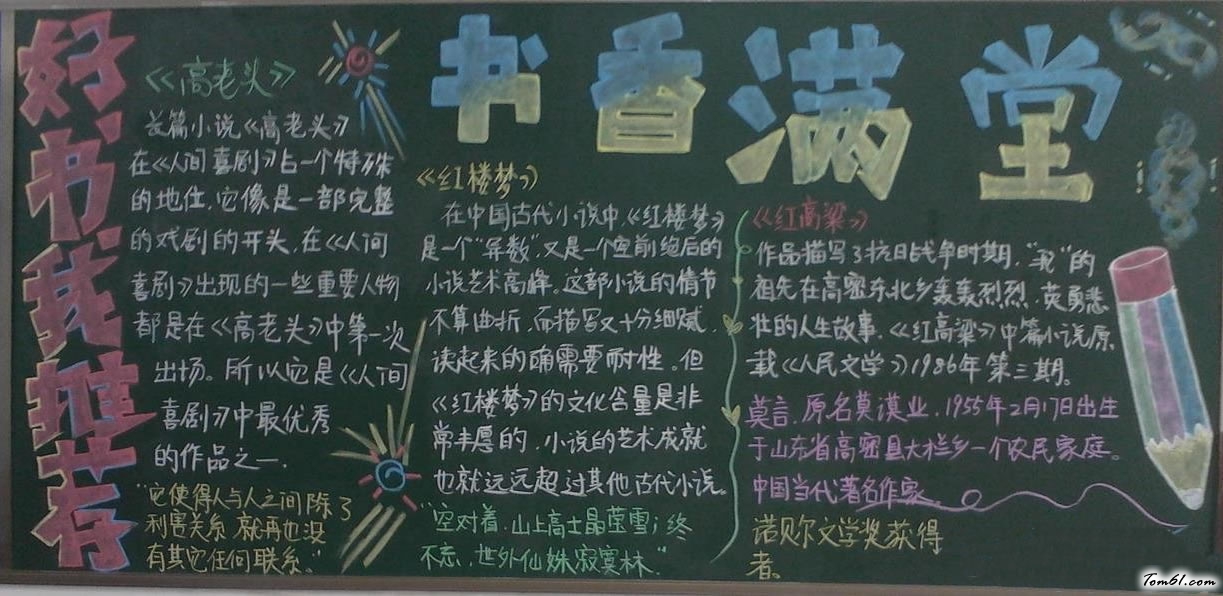 好书我推荐
书香满堂
《高老头》
长篇小说《高老头》
在《人间喜剧》占一个特殊
的地位,它像是一部完整
的戏剧的开头,在《人间
喜剧》出现的一些重要人物
都是在《高老头》中第一次
出场。所以它是《人间
喜剧》中最优秀
的作品之一.
"它使得人与人之间除了
利害关系,就再也没
有其它任何联系."
《红楼梦》
在中国古代小说中《红楼梦》
是一个"异数",又是一个空前绝后的
小说艺术高峰。这部小说的情节
不算曲折,而描写又十分细腻,
读起来的确需要耐性。但
《红楼梦》的文化含量是非
常丰愿的,小说的艺术成就
也就远远超过其他古代小说。
"空对着,山上高士晶莹雪;终
不忘,世外仙姝寂寞林."
《红高粱》
作品描写了抗日战争时期,"我"的
祖先在高密东北乡轰轰烈烈,英勇悲
壮的人生故事,《红高粱》中篇小说原
载《人民文学》1986年第三期。
莫言,原名莫谟业,1955年2月17日出生
于山东省高密县大栏乡一个农民家庭。
中国当代著名作家,
诺贝尔文学奖获得
者。
Tom61.com